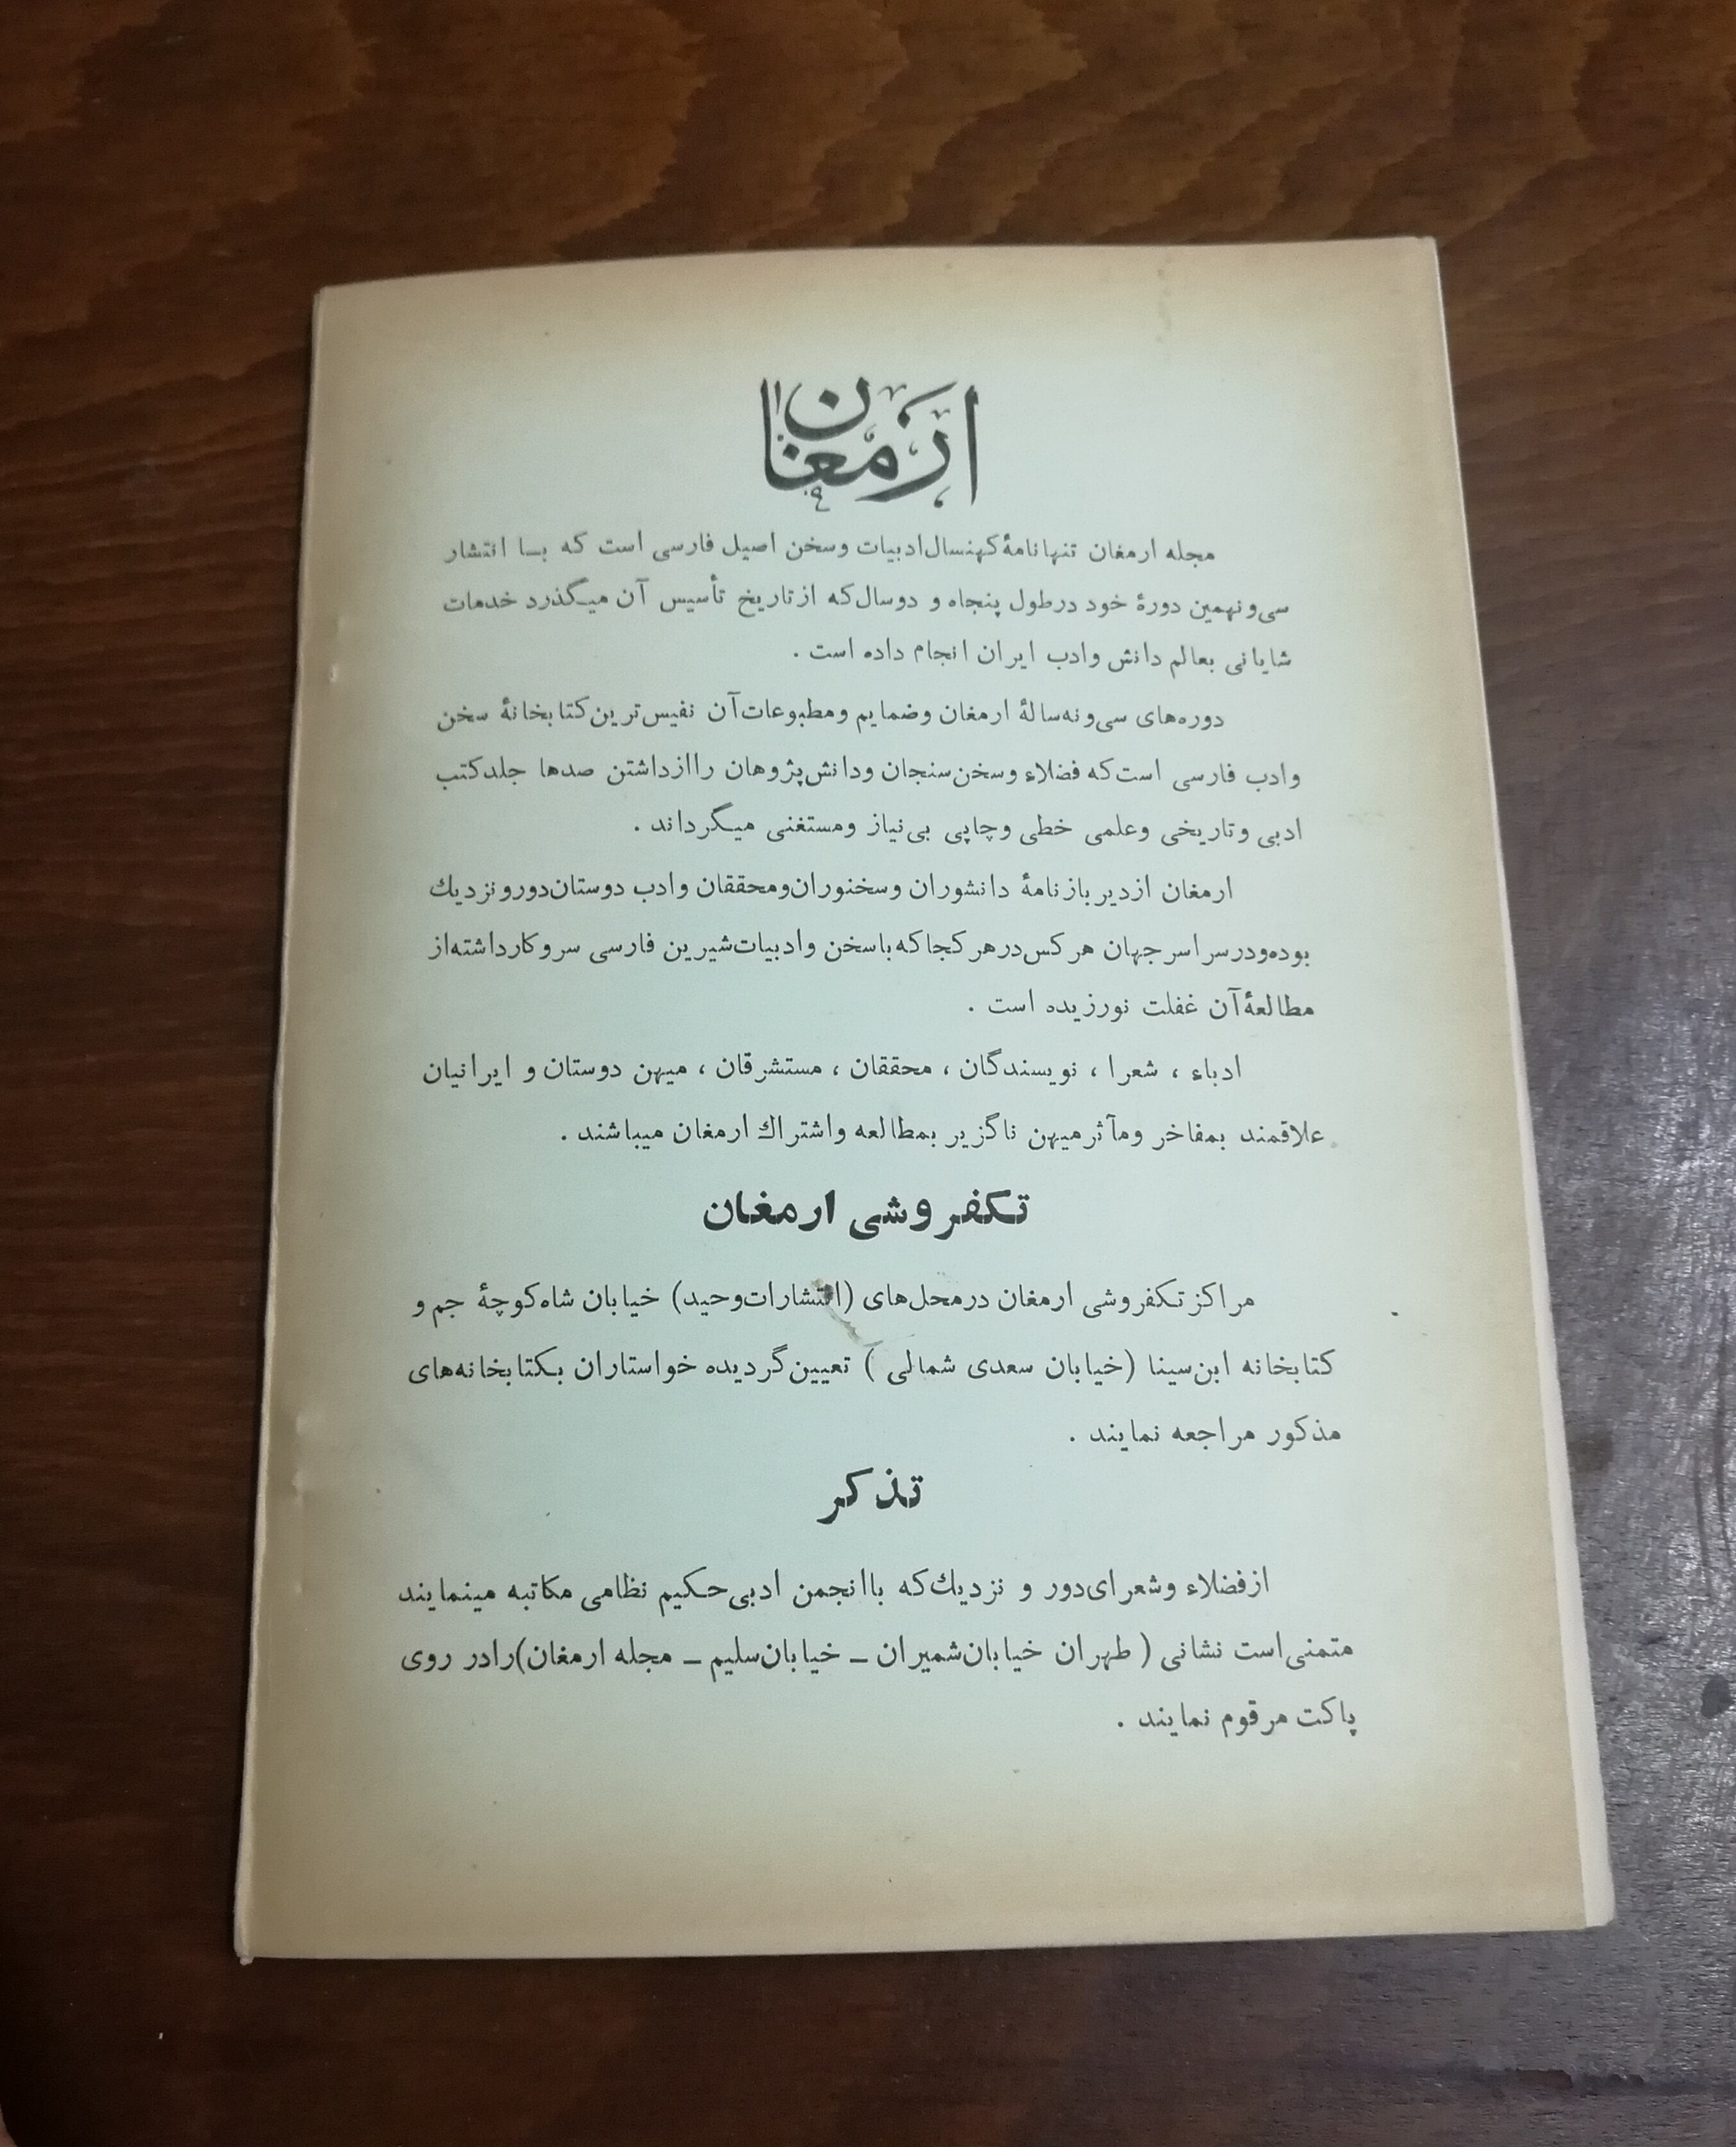 ارمغان
مجله ارمغان تنها نامهٔ کهنسال ادبیات و سخن اصیل فارسی است که بـا انتشار
سی‌و نهمین دورهٔ خود در طول پنجاه و دو سال که از تاریخ تأسیس آن میگذرد خدمات
شایانی بعالم دانش و ادب ایران انجام داده است .
دوره‌های سی‌و نه‌سالهٔ ارمغان و ضمایم و مطبوعات آن نفیس‌ترین کتابخانهٔ سخن
و ادب فارسی است که فضلاء و سخن‌سنجان و دانش‌پژوهان را از داشتن صدها جلد کتب
ادبی و تاریخی و علمی خطی و چاپی بی‌نیاز و مستغنی میگرداند .
ارمغان از دیر باز نامهٔ دانشوران و سخنوران و محققان و ادب دوستان دور و نزدیك
بوده و در سراسر جهان هر کس در هر کجا که با سخن و ادبیات شیرین فارسی سر و کار داشته از
مطالعهٔ آن غفلت نورزیده است .
ادباء ، شعرا ، نویسندگان ، محققان ، مستشرقان ، میهن دوستان و ایرانیان
علاقمند بمفاخر و مآثر میهن ناگزیر بمطالعه و اشتراك ارمغان میباشند .
تکفروشی ارمغان
مراکز تکفروشی ارمغان در محل‌های (انتشارات وحید) خیابان شاه کوچهٔ جم و
کتابخانه ابن‌سینا (خیابان سعدی شمالی ) تعیین گردیده خواستاران بکتابخانه‌های
مذکور مراجعه نمایند .
تذکر
از فضلاء و شعرای دور و نزدیك که با انجمن ادبی حکیم نظامی مکاتبه مینمایند
متمنی است نشانی ( طهران خیابان شمیران ـ خیابان سلیم ـ مجله ارمغان) را در روی
پاکت مرقوم نمایند .